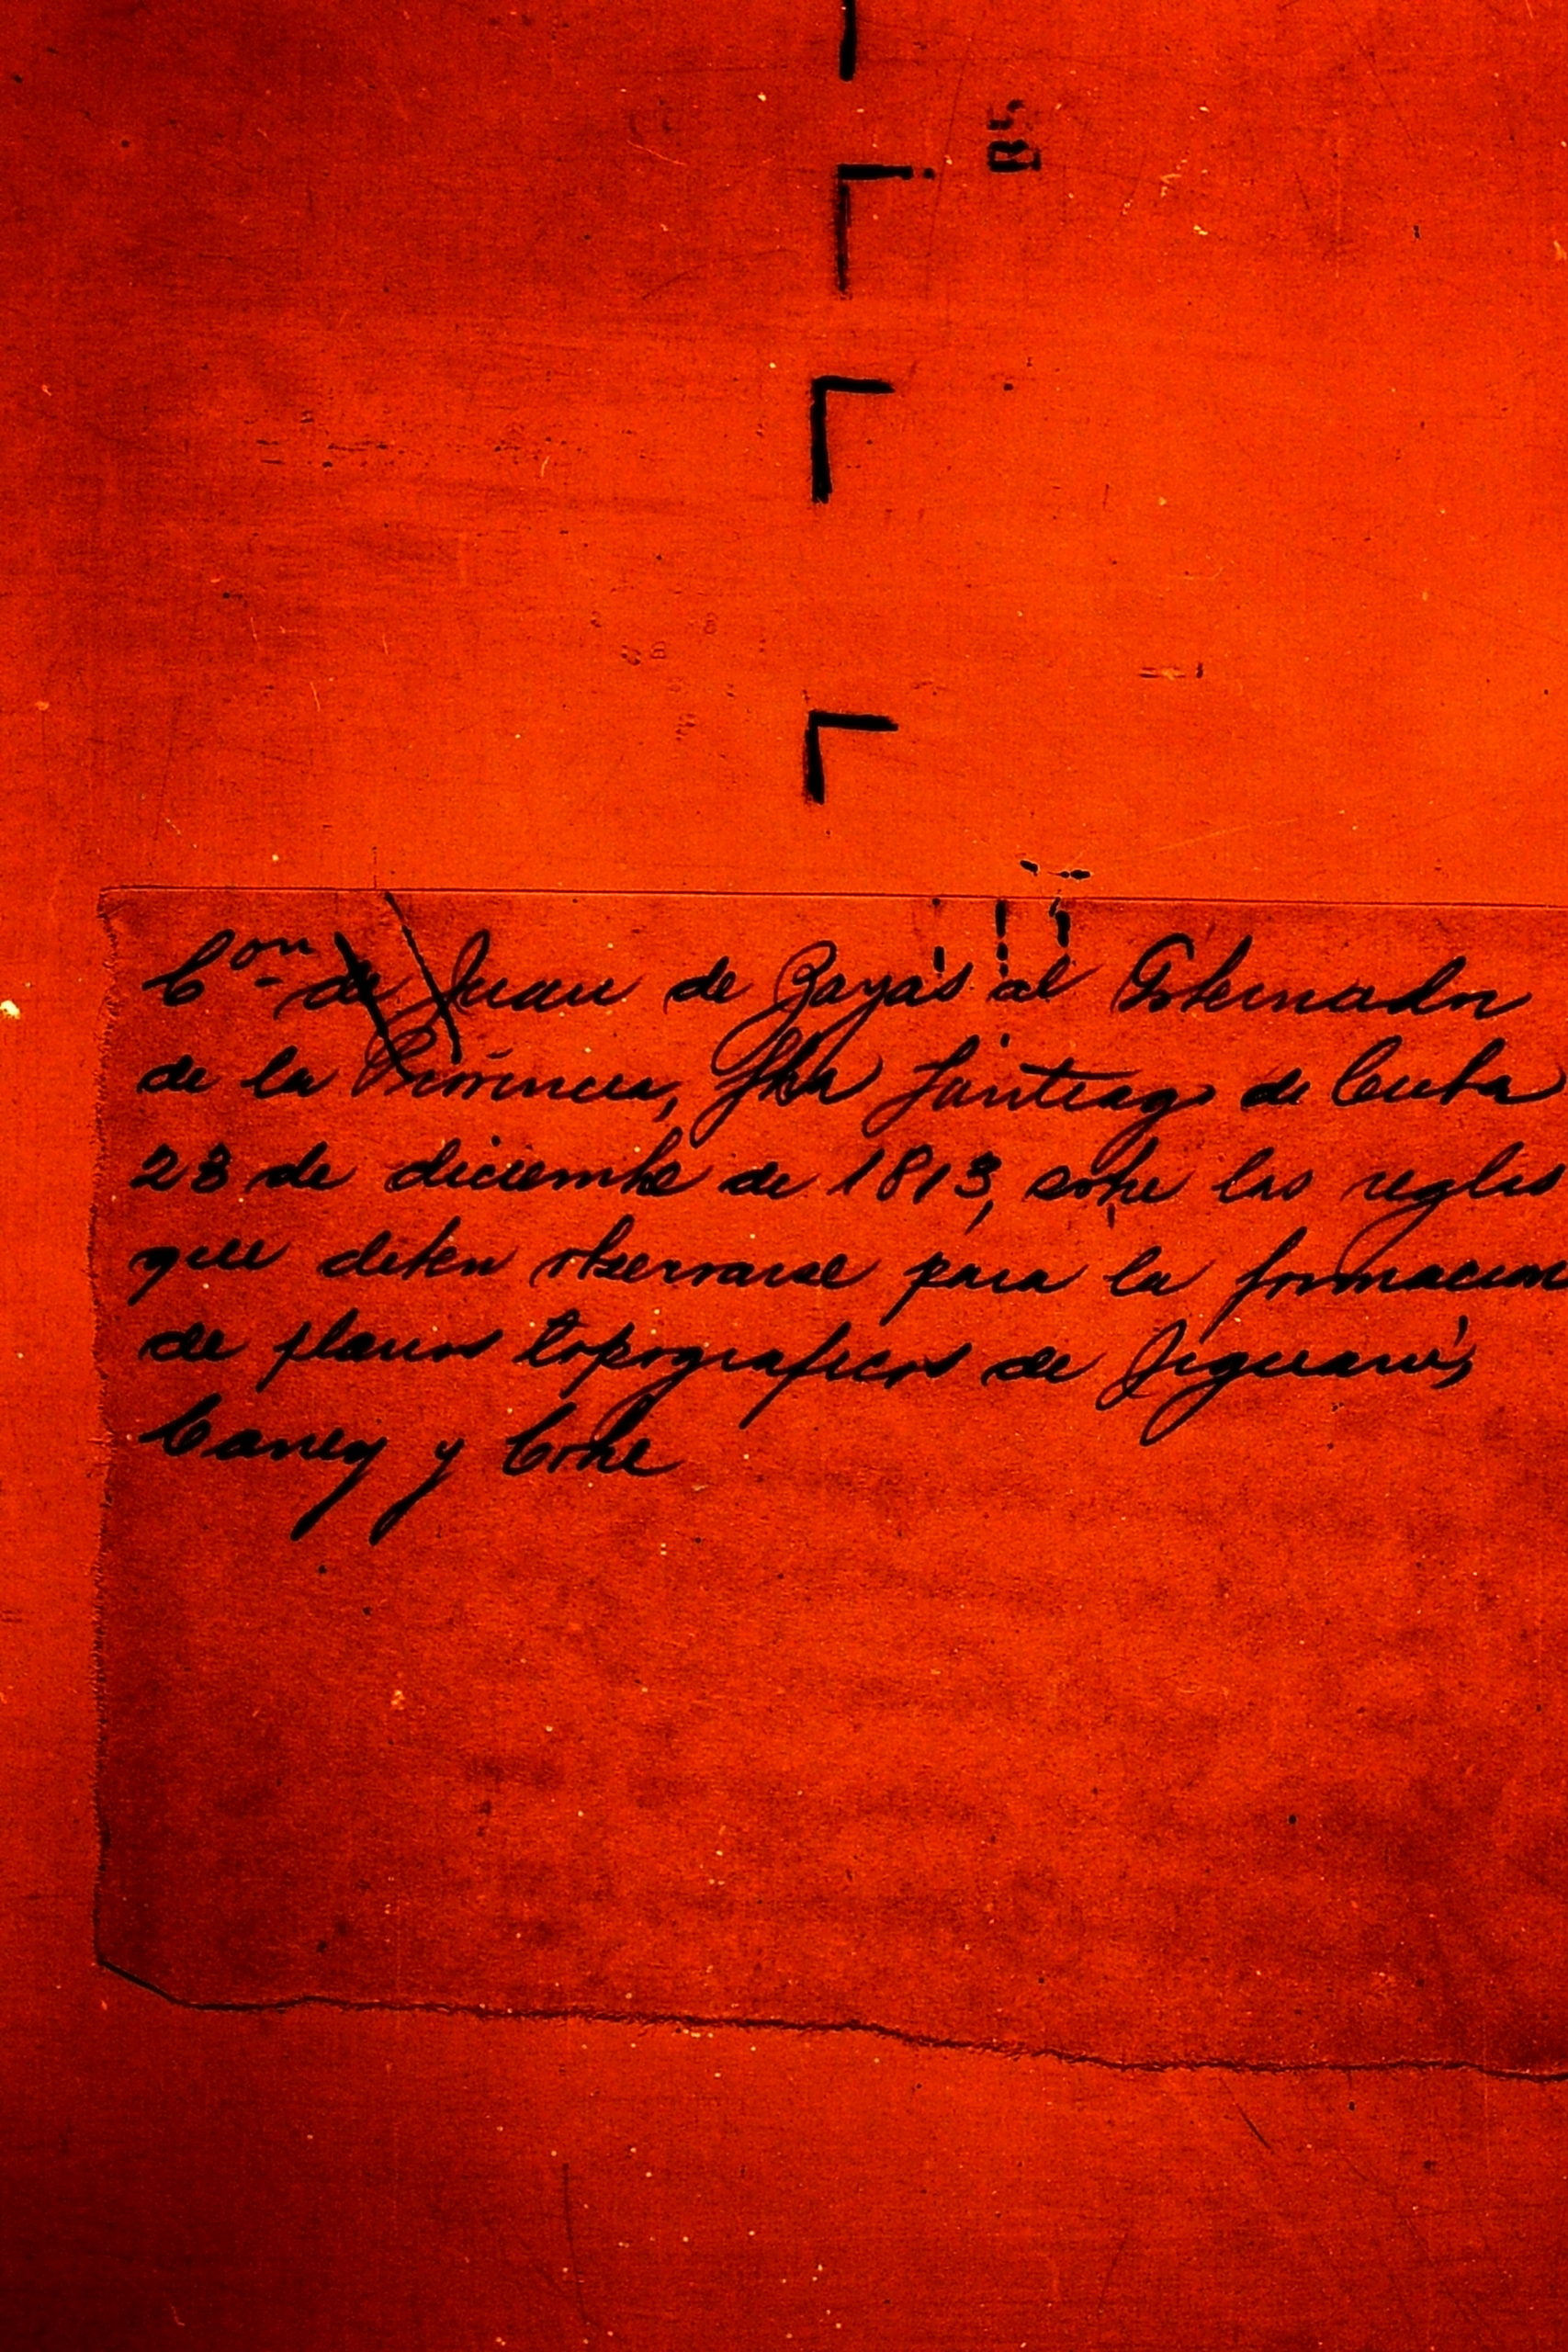 Con de Juan de Zayas al Gobernador
de la Provincia, fha Santiago de Cuba
23 de diciembre de 1813, sobre las reglas
que deben observarse para la formacion
de planos topograficos de Jiguaní,
Caney y Cobre